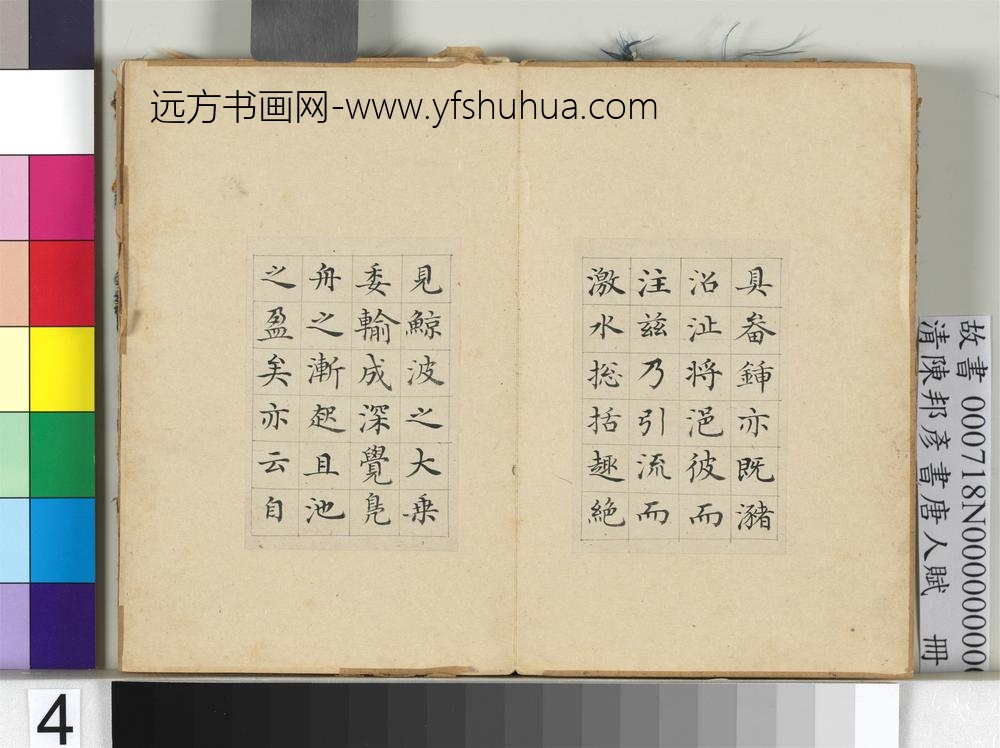 远方书画网-www.yfshuhua.com
具畚鍤亦既瀦
沼沚将浥彼而
注兹乃引流而
激水揔括趣絶
見鯨波之大乗
委輸成深覺鳬
舟之漸起且池
之盈矣亦云自
故書 000718N00000000
清陳邦彥書唐人賦 冊
4